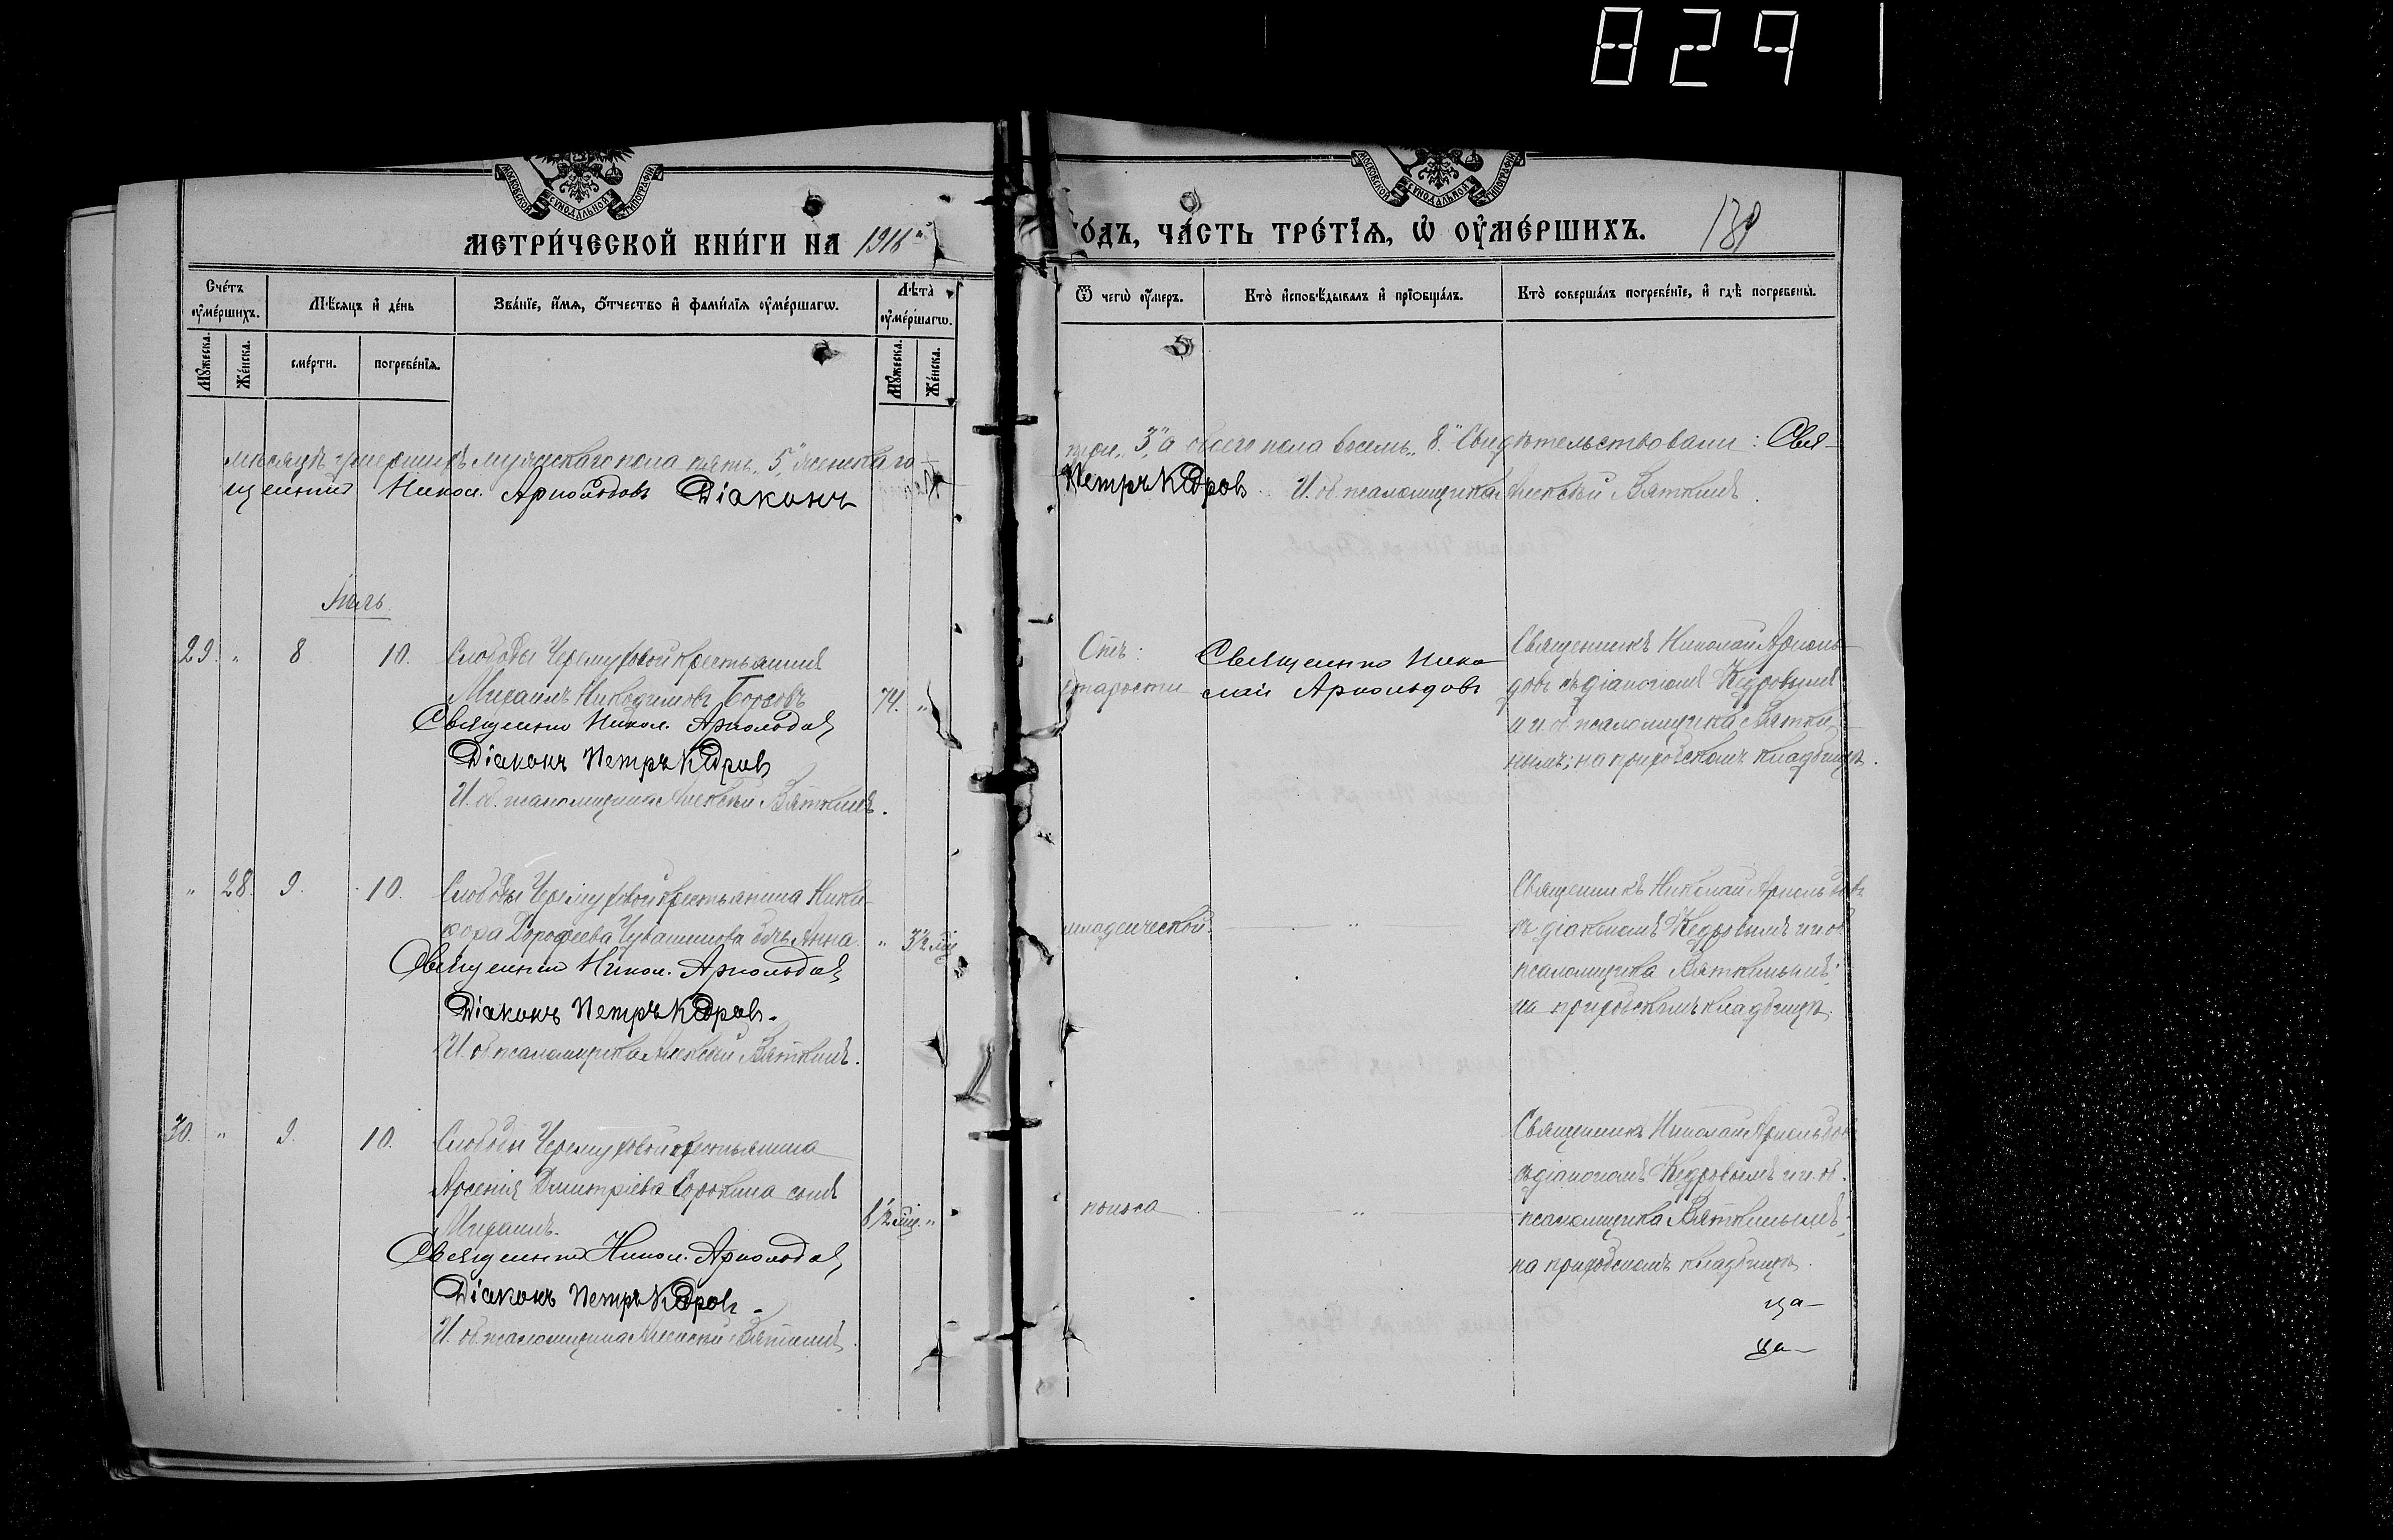 829
МОСКОВСКОЙ СѴНОДАЛЬНОЙ ТИПОГРАФІИ
МОСКОВСКОЙ СѴНОДАЛЬНОЙ ТИПОГРАФІИ
МЕТРИ́ЧЕСКОЙ КНИ́ГИ НА 1916
ГО́ДЪ, ЧА́СТЬ ТРЕ́ТІѦ, Ѡ҆ ОУ҆МЕ́РШИХЪ.
139
Сче́тъ оу҆ме́ршихъ.
Мꙋ́жеска.
Же́нска.
Мѣ́сѧцъ и҆ де́нь
сме́рти.
погребе́нїѧ.
Зва́нїе, и҆́мѧ, ѻ҆́тчество и҆ фами́лїѧ оу҆ме́ршагѡ.
Лѣ́та оу҆ме́ршагѡ.
Мꙋ́жеска.
Же́нска.
Ѿ чегѡ̀ оу҆́меръ.
Кто̀ и҆сповѣ́дывалъ и҆ прїѡбща́лъ.
Кто̀ соверша́лъ погребе́нїе, и҆ гдѣ̀ погребены̀.
мѣсяцѣ умершихъ мужескаго пола пять „5" женскаго
три „3", а обоего пола восемь „8". Свидѣтельствовали: Свя-
щенник Никол. Арнольдовъ Діаконъ
Петръ Кедровъ И. об. псаломщика Алексѣй Вяткинъ.
29. " 8 10. Слободы Черемуховой крестьянинъ
Михаилъ Никодимовъ 74. "
Священник Никол. Арнольдов
Діаконъ Петръ Кедровъ
И. об. псаломщика Алексѣй Вяткинъ.
Отъ:
старости
Священник Нико
лай Арнольдовъ
Священникъ Николай Арноль-
довъ съ діакономъ Кедровымъ
и и. об. псаломщика Вятки-
нымъ; на приходскомъ кладбищѣ.
" 28. 9. 10. Слободы Черемуховой крестьянина Ники-
фора Дорофеева Чувашинова дочь Анна. " 3½ мѣс
Священник Никол. Арнольдов
Діаконъ Петръ Кедровъ.
И. об. псаломщика Алексѣй Вяткинъ.
младенческой. "
Священникъ Николай Арнольдовъ
съ діакономъ Кедровымъ и и. об
псаломщика Вяткинымъ;
на приходскомъ кладбищѣ.
30. " 9. 10. Слободы Черемуховой крестьянина
Арсенія Дмитріева Сорокина сынъ
Михаилъ. 8½ мѣс. "
Священник Никол. Арнольдов
Діаконъ Петръ Кедровъ.
И. об. псаломщика Алексѣй Вяткинъ.
поноса "
Священникъ Николай Арнольдовъ
съ діакономъ Кедровымъ и и. об.
псаломщика Вяткинымъ;
на приходскомъ кладбищѣ.